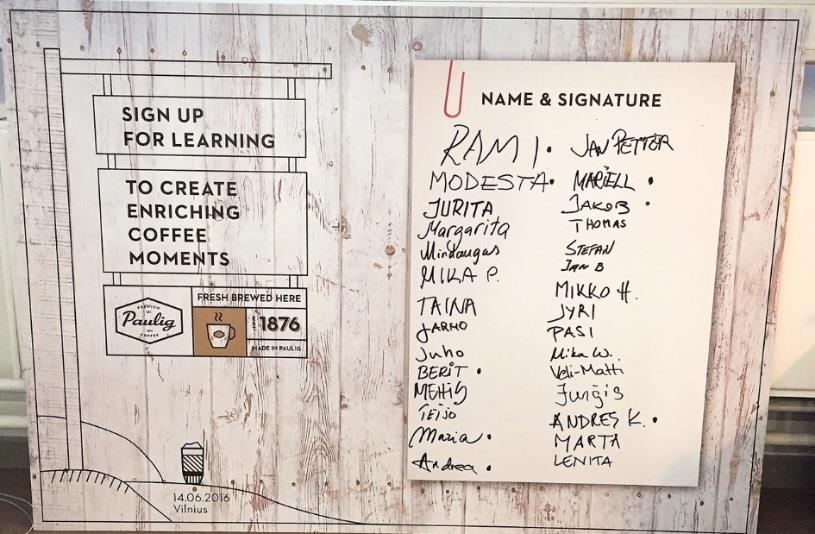 SIGN UP
FOR LEARNING
TO CREATE
ENRICHING
COFFEE
MOMENTS
PREMIUM
Paulig
COFFEE
FRESH BREWED HERE
1876
MADE IN PAULIG
14.06.2016
Vilnius
NAME & SIGNATURE
RAMI.
MODESTA.
JURITA
Margarita
Mindaugas
MIKA P.
TAINA
JARMO
Juho
BERIT .
MEHIS
TEIJO
Maria .
Andrea .
JAN PETTER
MARIELL .
JAKOB .
THOMAS
STEFAN
JAN B
MIKKO H.
JYRI
PASI
Mika W.
Veli-Matti
Jurģis
ANDRES K. .
MARTA
LENITA